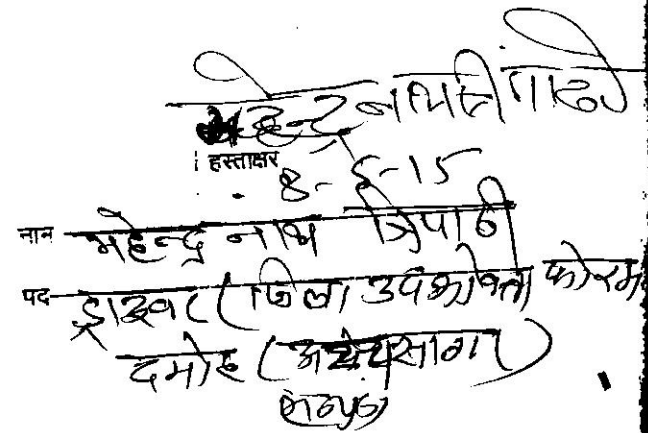 महेन्द्र नाथ त्रिपाठी
हस्ताक्षर
8-5-15
नाम महेन्द्र नाथ त्रिपाठी
पद ड्राइवर (जिला उपभोक्ता फोरम
दमोह